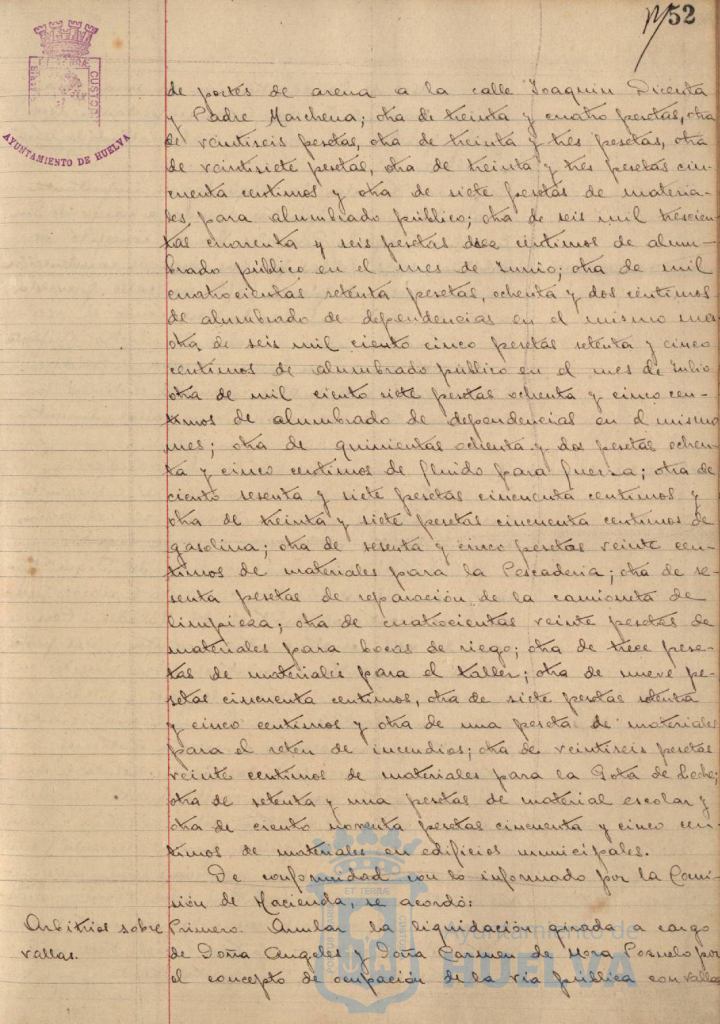 52
AYUNTAMIENTO DE HUELVA
de portes de arena a la calle Joaquin Dicenta
y Padre Marchena; otra de treinta y cuatro pesetas, otra
de veintiseis pesetas, otra de treinta y tres pesetas, otra
de veintisiete pesetas, otra de treinta y tres pesetas cin-
cuenta centimos y otra de siete pesetas de materia-
les para alumbrado público; otra de seis mil trescien-
tas cuarenta y seis pesetas doce centimos de alum-
brado público en el mes de Junio; otra de mil
cuatrocientas setenta pesetas, ochenta y dos centimos
de alumbrado de dependencias en el mismo mes
otra de seis mil ciento cinco pesetas setenta y cinco
centimos de alumbrado público en el mes de Julio
otra de mil ciento siete pesetas ochenta y cinco cen-
timos de alumbrado de dependencias en el mismo
mes; otra de quinientas ochenta y dos pesetas ochen-
ta y cinco centimos de fluido para fuerza; otra de
ciento sesenta y siete pesetas cincuenta centimos y
otra de treinta y siete pesetas cincuenta centimos de
gasolina; otra de sesenta y cinco pesetas veinte cen-
timos de materiales para la Pescaderia; otra de se-
senta pesetas de reparación de la camioneta de
limpieza; otra de cuatrocientas veinte pesetas de
materiales para bocas de riego; otra de trece pese-
tas de materiales para el taller; otra de nueve pe-
setas cincuenta centimos, otra de siete pesetas setenta
y cinco centimos y otra de una peseta de materiales
para el reten de incendios; otra de veintiseis pesetas
veinte centimos de materiales para la Gota de Leche;
otra de setenta y una pesetas de material escolar y
otra de ciento noventa pesetas cincuenta y cinco cen-
timos de materiales en edificios municipales.
De conformidad con lo informado por la Comi-
sión de Hacienda, se acordó:
Arbitrios sobre
vallas.
Primero. Anular la liquidación girada a cargo
de Doña Angeles y Doña Carmen de Mora por
el concepto de ocupación de la via pública con vallas
Ayuntamiento de
HUELVA